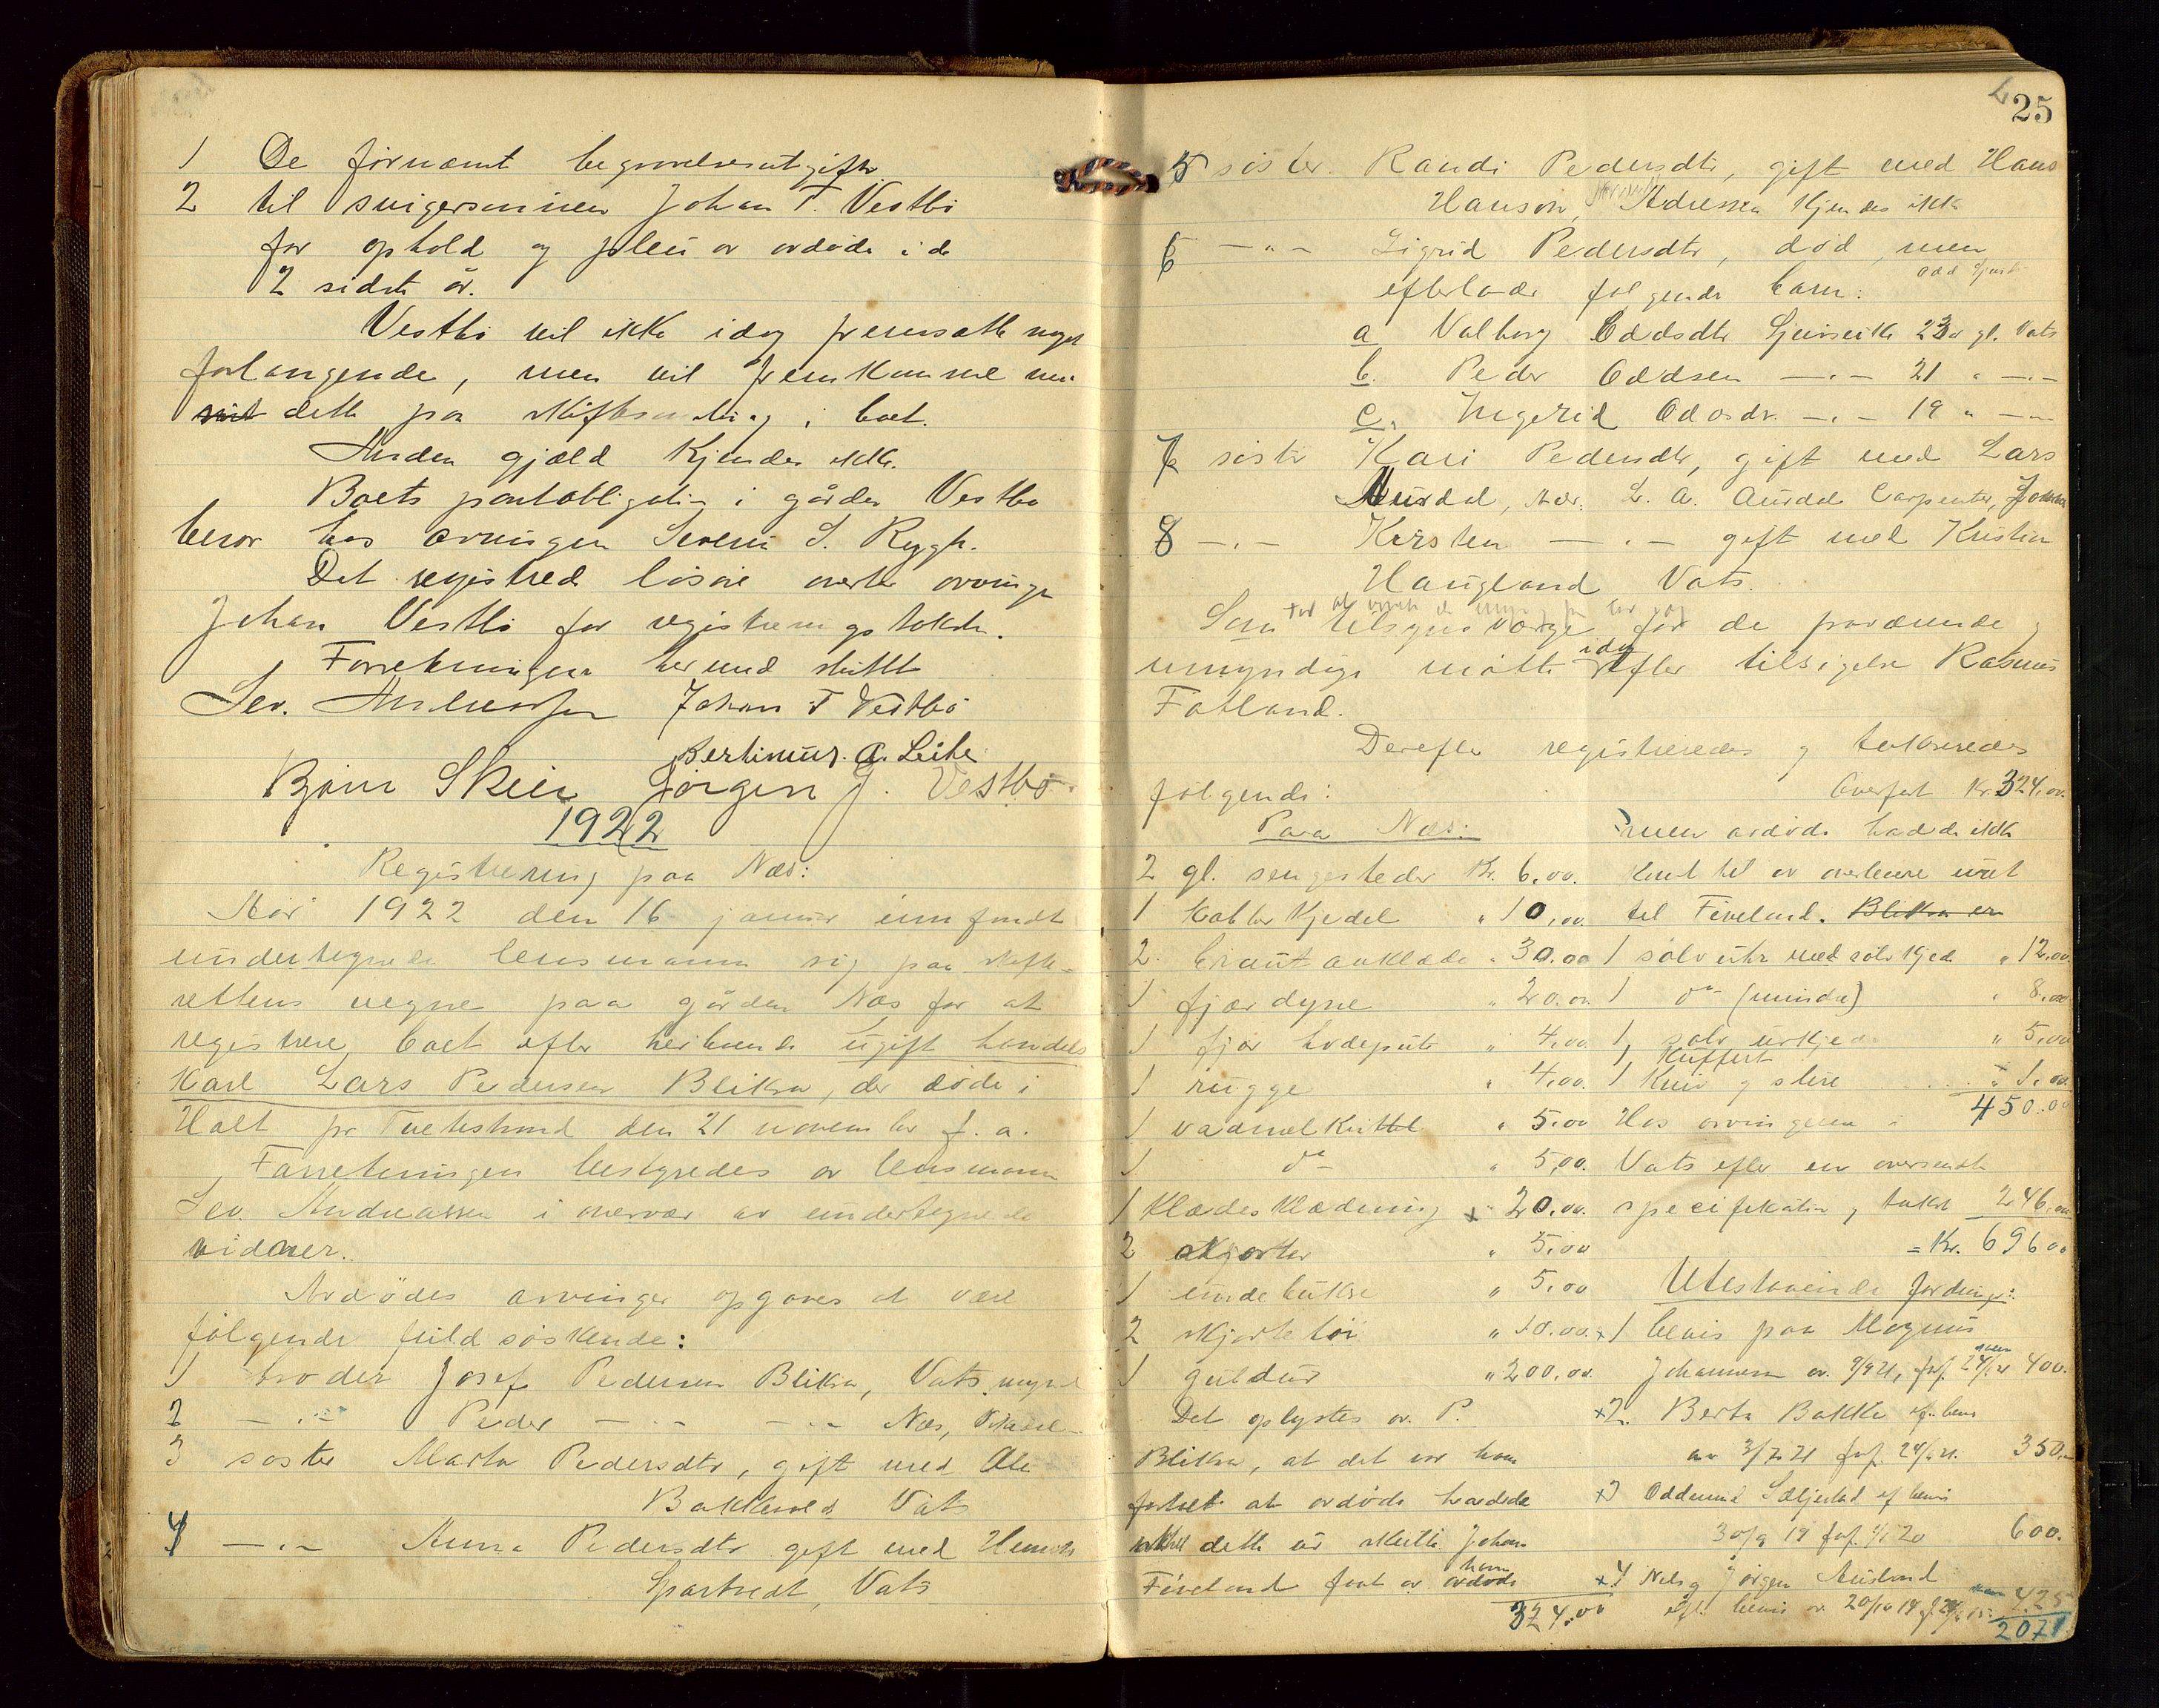 1 De fornævnt begravelsesutgifter
2 til svigersønnen Johan T. Vestbö
for ophold og pleie av avdöde i de
2 sidste år.
Vestbö vil ikke idag fremsætte noget
forlangende, men vil fremkomme med
dette paa skiftesamling i boet.
Anden gjæld kjendes ikke.
Boets pantobligation i gården Vestbö
beror hos arvingen Severin S. Rygh.
Det registrerte lösöre overtar arvingen
Johan Vestbö for registreringstaksten.
Forretningen hermed sluttet
Sev. Andreassen Johan T Vestbö
Bertinius. A. Leite
Bjarne Skeie Jörgen J. Vestbö
1922
Registrering paa Næs:
Aar 1922 den 16 januar innfandt
undertegnede lensmann sig paa skifte-
rettens vegne paa gården Næs for at
registrere boet efter heiboende ugift handels
karl Lars Pedersen Blikra, der döde i
Holt pr Tvedestrand den 21 november f. a.
Forretningen bestyredes av lensmann
Sev. Andreassen i overvær av undertegnede
vidner.
Avdödes arvinger opgaves at være
fölgende fuldsöskende:
1 broder Josef Pedersen Blikra, Vats, myndig
2 — " — Peder — " — — " — Næs,
3 söster Marta Pedersdtr, gift med Ole
Bakkevold Vats
4 — " — Anna Pedersdtr gift med Henrik
Spartveit, Vats
25
5 söster Randi Pedersdtr, gift med Hans
Hanson, Adressen kjendes ikke
6 — " — Sigrid Pedersdtr, död, men
efterlader fölgende barn:
a Valborg Oddsdtr 23 år gl. Vats
b. Peder Oddsen — " — 21 " — " —
c. Ingerid Oddsdr. — " — 19 " — " —
7 söster Kari Pedersdtr, gift med Lars
Aurdal, Adr. L. A. Aurdal Carpenter,
8 — " — Kirsten — " — gift med Kristian
Haugland Vats.
Som tilsynsværge for de fraværende og
umyndige mötte idag efter tilsigelse Rasmus
Fatland.
Derefter registreredes og takseredes
fölgende:
Paa Næs:
2 gl. sengesteder Kr. 6,00.
1 kobberkjedel " 10,00
2 " 30.00
1 fjærdyne " 20.00
1 fjær hodepute " 4,00
1 rugge " 4,00.
1 vadmelskittel " 5.00
1 do " 5,00.
1 klædesklædning x " 20.00.
2 skjorter " 5,00
1 underbukse " 5,00
2 skjortetöi " 10.00.
1 guldur " 200,00.
Det oplystes av P.
Blikra, at det var ham
fortalt at avdöde hadde
dette ur skulde Johan
Fiveland faat av ham avdöde
324.00
Overfört Kr. 324.00.
men avdöde hadde ikke
kunt til at overlevere uret
til Fiveland. Blikra er
1 sölvuhr med sölvkjede " 12.00
1 do (mindre) " 8.00
1 sölv urkjede " 5,00
1 Kuffert
1 Kniv og slire " 1.00
450.00
Hos arvingene i
Vats efter en oversendt
specifikation og takst 246.00
= Kr. 696.00
Utestaaende fordringer:
x1 bevis paa Magnus
Johannesen av 9/9 21, 400.
x2. Berta Bakke ef. bevis
av 3/7 21 forf. 350.
x3 Oddmund Sæljestad ef bevis
30/9 19 forf. 600.
x4 Nils og Jörgen Austrud
efter bevis av 20/10 19 425
2071